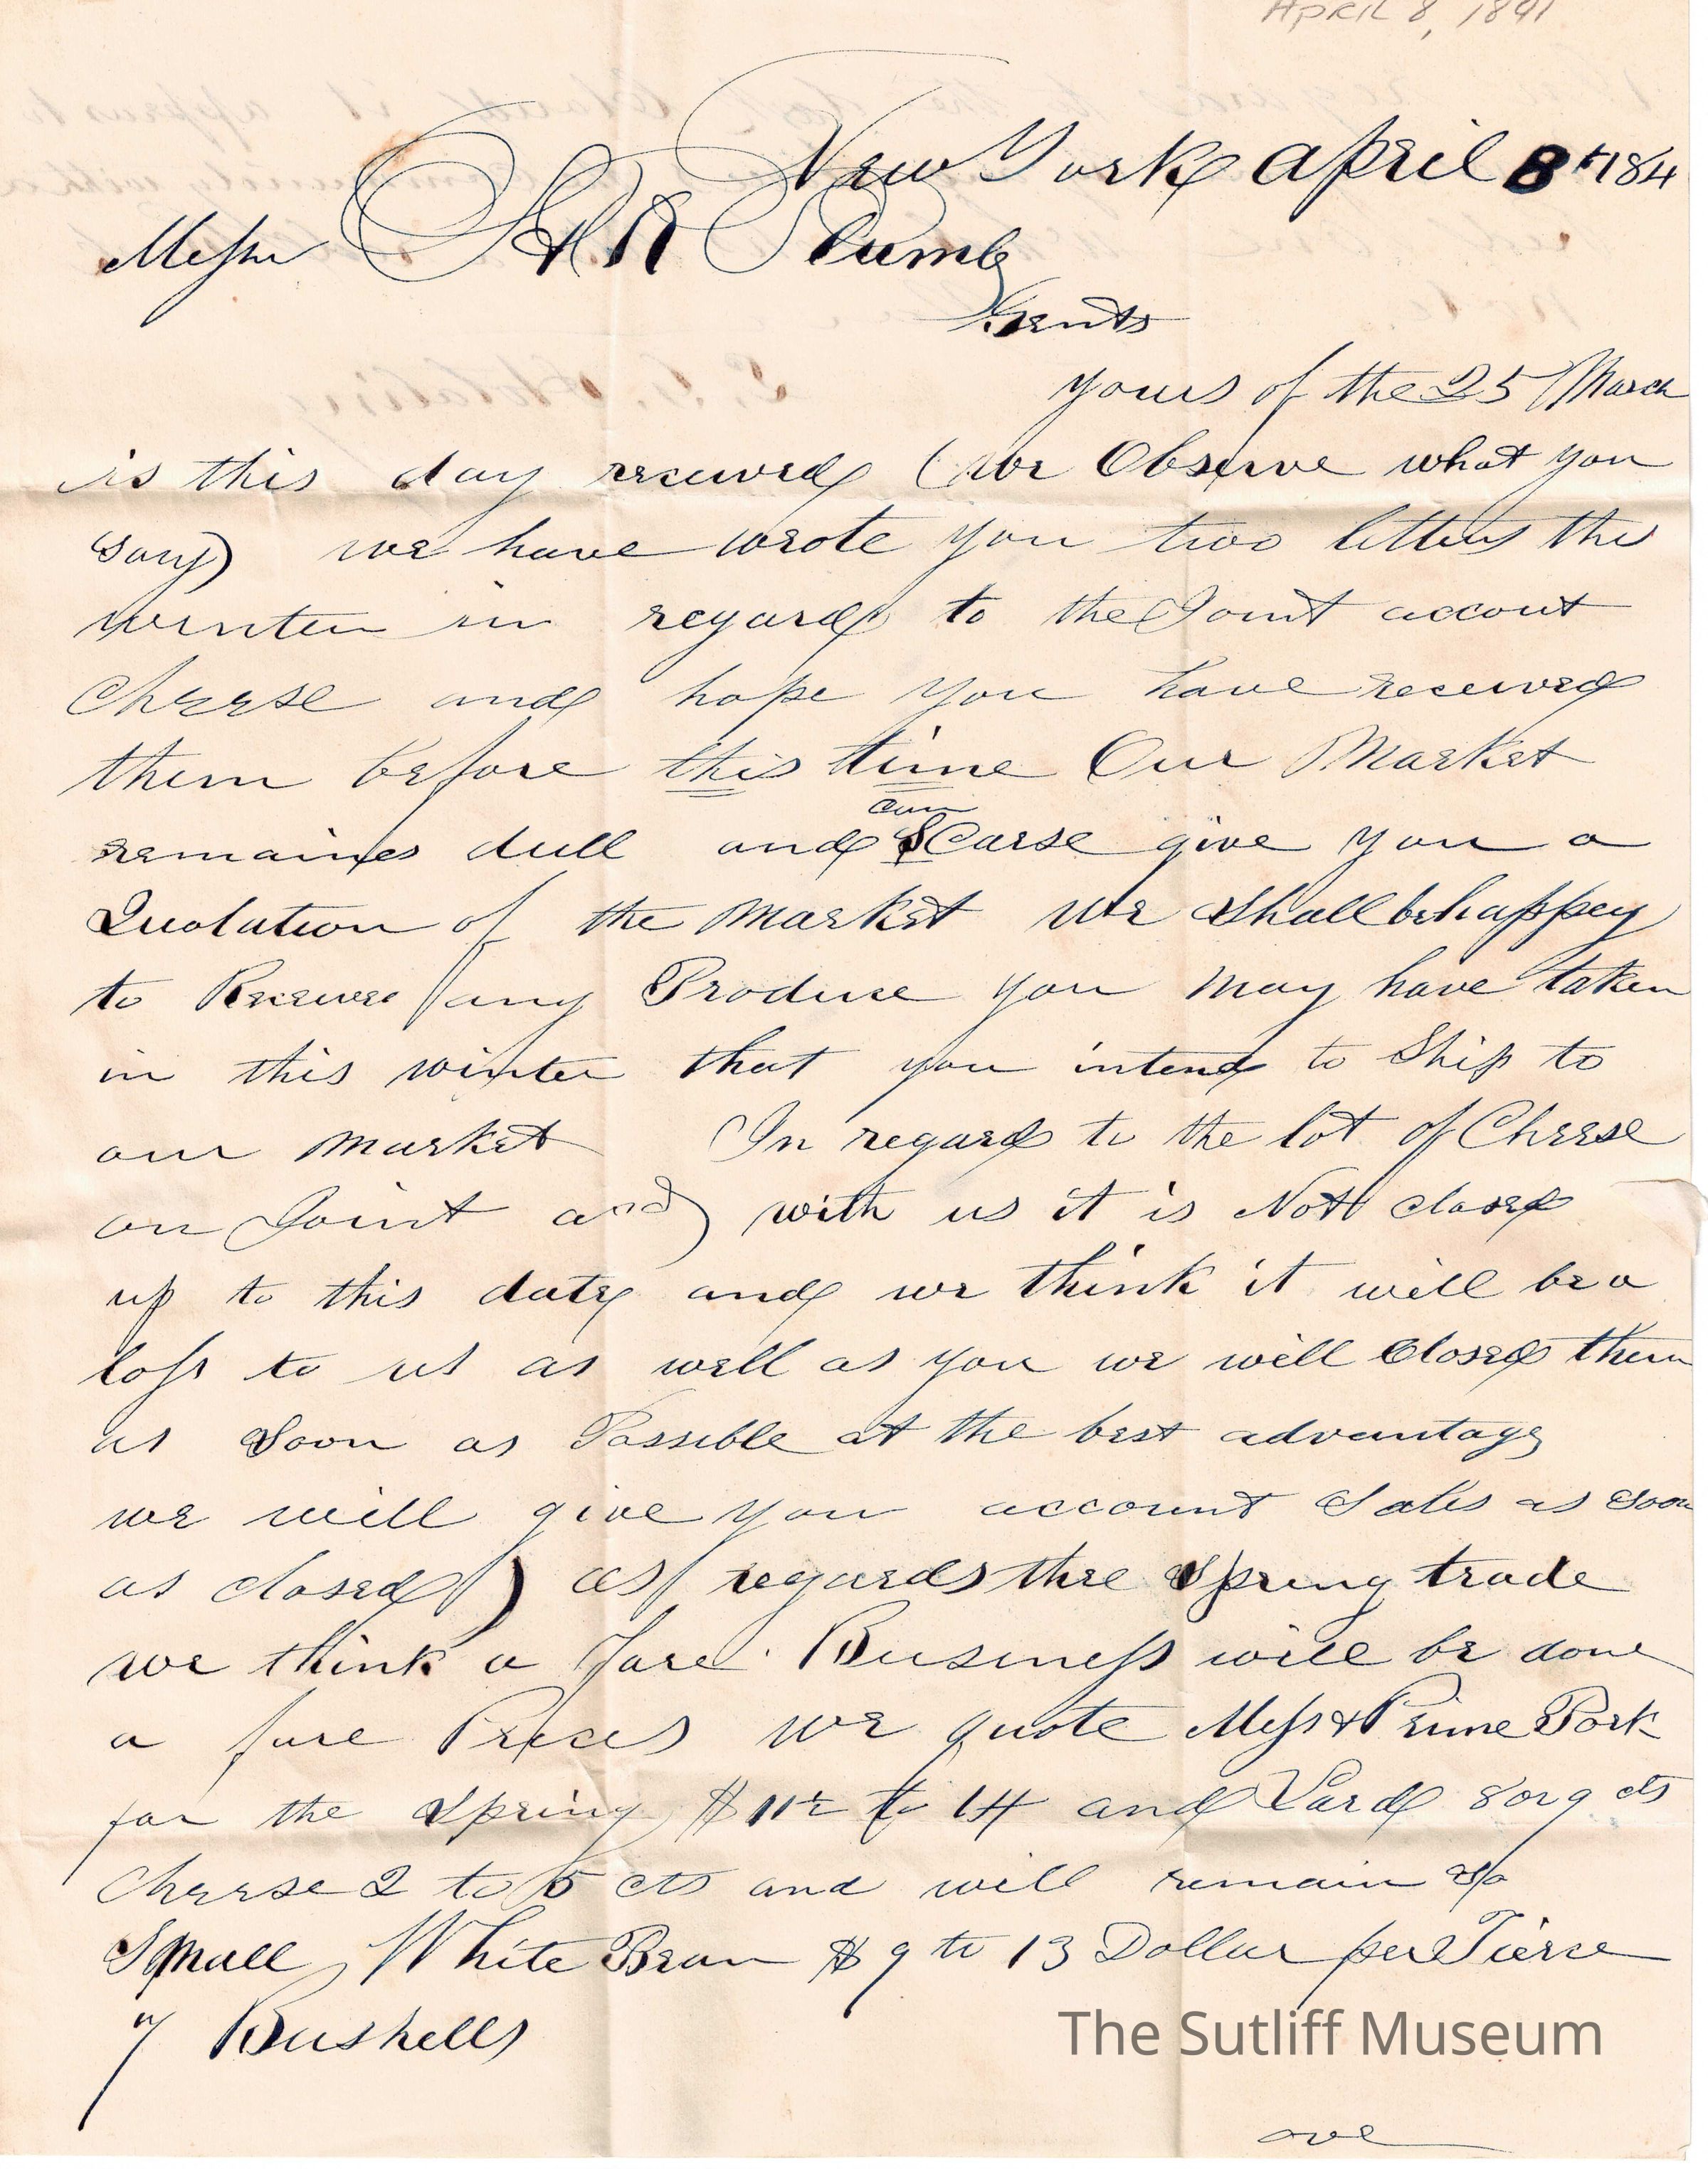 APRIL 8, 1841
New York April 8th 184
Messrs S & R Plumb
Gents
yours of the 25 March
is this day received (we Observe what you
say) we have wrote you two letters this
winter in regard to the Joint accout
Cheese and hope you have received
them before this time Our Market
remaines dull and can Scarse give you a
Quotation of the market We shall be happey
to Receive any Produce you may have taken
in this winter that you intend to Ship to
our market In regard to the lot of Cheese
on Joint a) with us it is Nott closed
up to this date and we think it will be a
loss to us as well as you we will Closed them
as Soon as Possible at the best advantage
we will give you account Sales as soon
as closed) as regards thee Spring trade
we think a fare Business will be done
a fare Prices we quote Mess & Prime Pork
for the Spring $ to 14 and Lard 8 or 9 cts
Cheese 2 to 5 cts and will remain so
Small White Bean $ 9 to 13 Dollar per Tierse
7 Bushells
The Sutliff Museum
ove